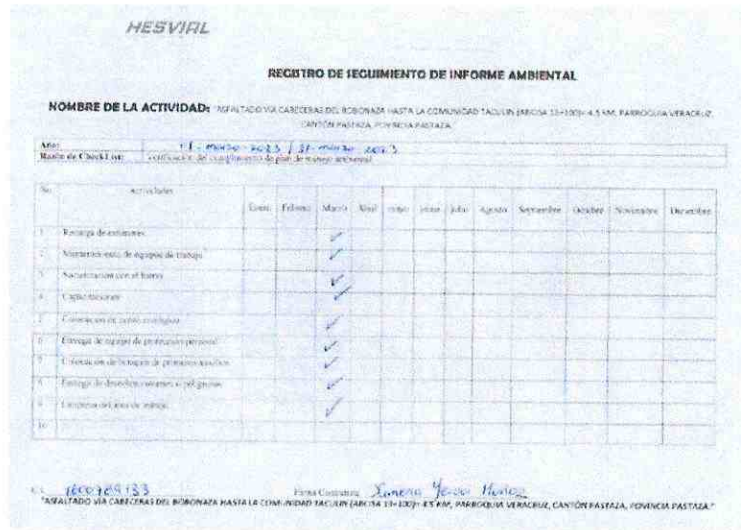 HESVIAL
REGISTRO DE SEGUIMIENTO DE INFORME AMBIENTAL
NOMBRE DE LA ACTIVIDAD: "ASFALTADO VÍA CABECERAS DEL BOBONAZA HASTA LA COMUNIDAD TACULIN (ABCISA 13+100)= 4.5 KM, PARROQUIA VERACRUZ,
CANTÓN PASTAZA, POVINCIA PASTAZA.
Año: marzo-2023 / 31-marzo 2023
Razón de CheckList: verificación del cumplimiento de plan de manejo ambiental
No Actividades Enero Febrero Marzo Abril mayo junio julio Agosto Septiembre Octubre Noviembre Diciembre
1 Recarga de extintores ✓
2 Mantenimiento de equipos de trabajo ✓
3 Socialización con el barrio ✓
4 Capacitaciones ✓
5 Colocación de ✓
6 Entrega de equipo de protección personal ✓
7 Colocación de botiquín de primeros auxilios ✓
8 Entrega de desechos comunes o peligrosos ✓
9 Limpieza del área de trabajo ✓
10
Firma Contratista
"ASFALTADO VÍA CABECERAS DEL BOBONAZA HASTA LA COMUNIDAD TACULIN (ABCISA 13+100)= 4.5 KM, PARROQUIA VERACRUZ, CANTÓN PASTAZA, POVINCIA PASTAZA."